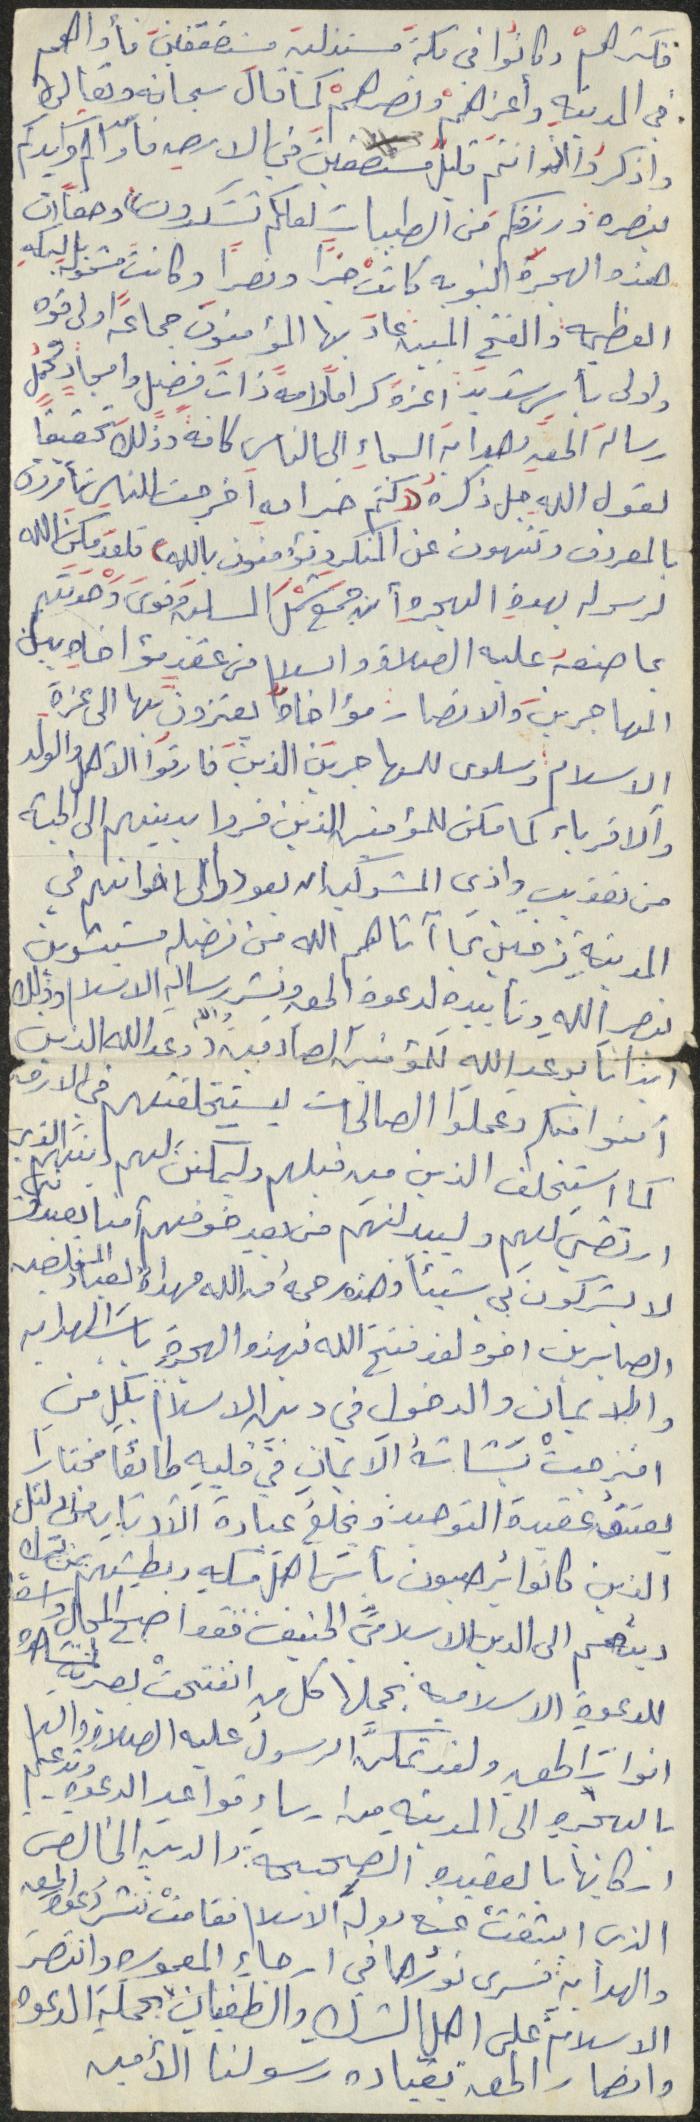 فكثرهم وكانوا في مكة مستذلين مستضعفين فآواهم
في المدينه وأعزهم ونصرهم كما قال سبحانه وتعالى
واذكروا اذ انتم قليل مستضعفين في الارض فآواكم وأيدكم
بنصره ورزقكم من الطيبات لعلكم تشكرون» وحقاً ان
هذه الهجرة النبويه كانت خيرًا ونصرًا وكانت مشحونة بالبركه
العظيمه والفتح المبين عاد بها المؤمنون جماعة اولى قوه
واولى بأس شديد اعزة كراماً لامة ذات فضل وامجاد تحمل
رسالة الحق وهداية السماء الى الناس كافة وذلك تحقيقاً
لقول الله جل ذكره «كنتم خير امه اخرجت للناس تأمرون
بالمعروف وتنهون عن المنكر وتؤمنون بالله» فلقد مكن الله
لرسوله بهذه الهجره أن جمع شمل المسلمين وقوى وحدتهم
بما صنعه عليه الصلاة والسلام من عقد مؤاخاه بين
المهاجرين والانصار مؤاخاة يعتزون بها الى عزة
الاسلام وسلوى للمهاجرين الذين فارقوا الأهل والولد
والاقرباء كما مكن للمؤمنين الذين فروا بدينهم الى الحبشة
من تعذيب واذى المشركين ان يعودوا الى اخوانهم في
المدينة فرحين بما آتاهم الله من فضله مستبشرين
بنصر الله وتأييده لدعوة الحق ونشر رسالة الاسلام وذلك
ايذانا بوعد الله للمؤمنين الصادقين «وعد الله الذين
آمنوا منكم وعملوا الصالحات ليستخلفنهم في الارض
كما استخلف الذين من قبلهم وليمكنن لهم دينهم الذي
ارتضى لهم وليبدلنهم من بعد خوفهم أمنا يعبدونني
لا يشركون بي شيئاً وهذه رحمة من الله مهداة لعباده المخلصين
الصابرين اخوه لقد فتح الله بهذه الهجرة باب الهدايه
والايمان والدخول في دين الاسلام بكل من
امتزجت بشاشة الايمان في قلبه طائعًا مختارًا
يعتنق عقيدة التوحيد ويخلع عبادة الأوثان
الذين كانوا يرهبون بأس اهل مكه وبطشهم من ترك
دينهم الى الدين الاسلامي الحنيف فقد اصبح المجال واسعا
للدعوة الاسلاميه يحملها كل من انفتحت بصيرته
انوار الحق ولقد تمكن الرسول عليه الصلاة والسلام
بالهجره الى المدينه من ارساء قواعد الدعوه وتدعيم
اركانها بالعقيده الصحيحة والدين الخالص
الذى انبثقت عنه دولة الاسلام فقامت تنشر دعوة الحق
والهداية فسرى نورها في ارجاء المعموره وانتصر
الاسلام على اهل الشرك والطغيان بحملة الدعوه
وانصار الحق بقياده رسولنا الأمين